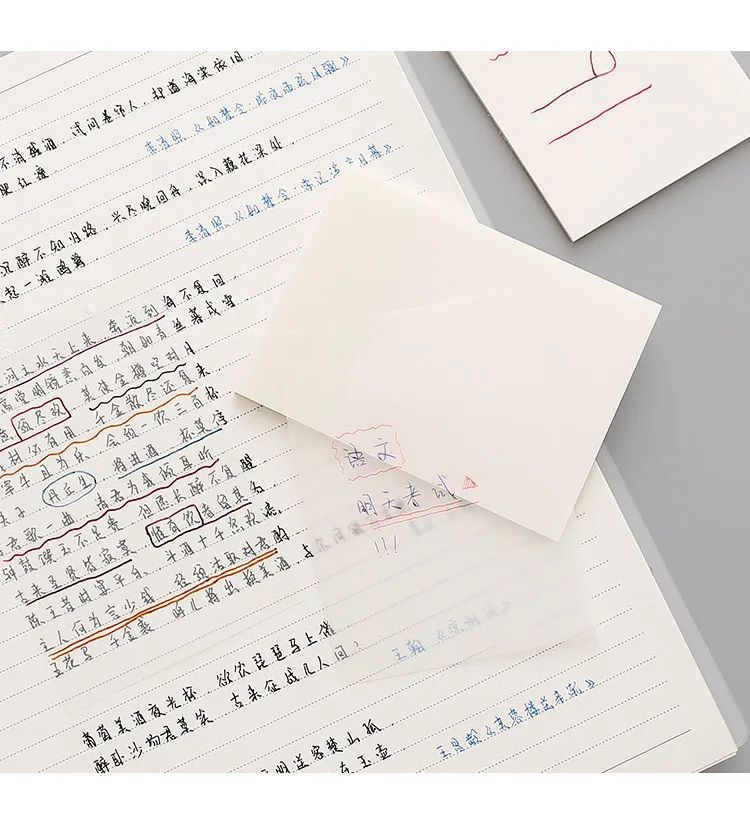 不消残酒，试问卷帘人，却道海棠依旧
李清照《如梦令·昨夜雨疏风骤》
肥红瘦
沉醉不知归路，兴尽晚回舟，误入藕花深处
李清照《如梦令·常记溪亭日暮》
起一滩鸥鹭
河之水天上来，奔流到海不复回
高堂明镜悲白发，朝如青丝暮成雪
意须尽欢 莫使金樽空对月
材必有用 千金散尽还复来
宰牛且为乐 会须一饮三百杯
夫子 丹丘生 将进酒 杯莫停
君歌一曲，请君为我倾耳听
钟鼓馔玉不足贵，但愿长醉不复醒
古来圣贤皆寂寞 惟有饮者留其名
陈王昔时宴平乐，斗酒十千恣欢谑
主人何为言少钱 径须沽取对君酌
五花马 千金裘 呼儿将出换美酒，与
语文
明天考试
!!!
王翰《凉州词》
葡萄美酒夜光杯 欲饮琵琶马上催
醉卧沙场君莫笑 古来征战几人回？
明送客楚山孤
在玉壶
王昌龄《芙蓉楼送辛渐》